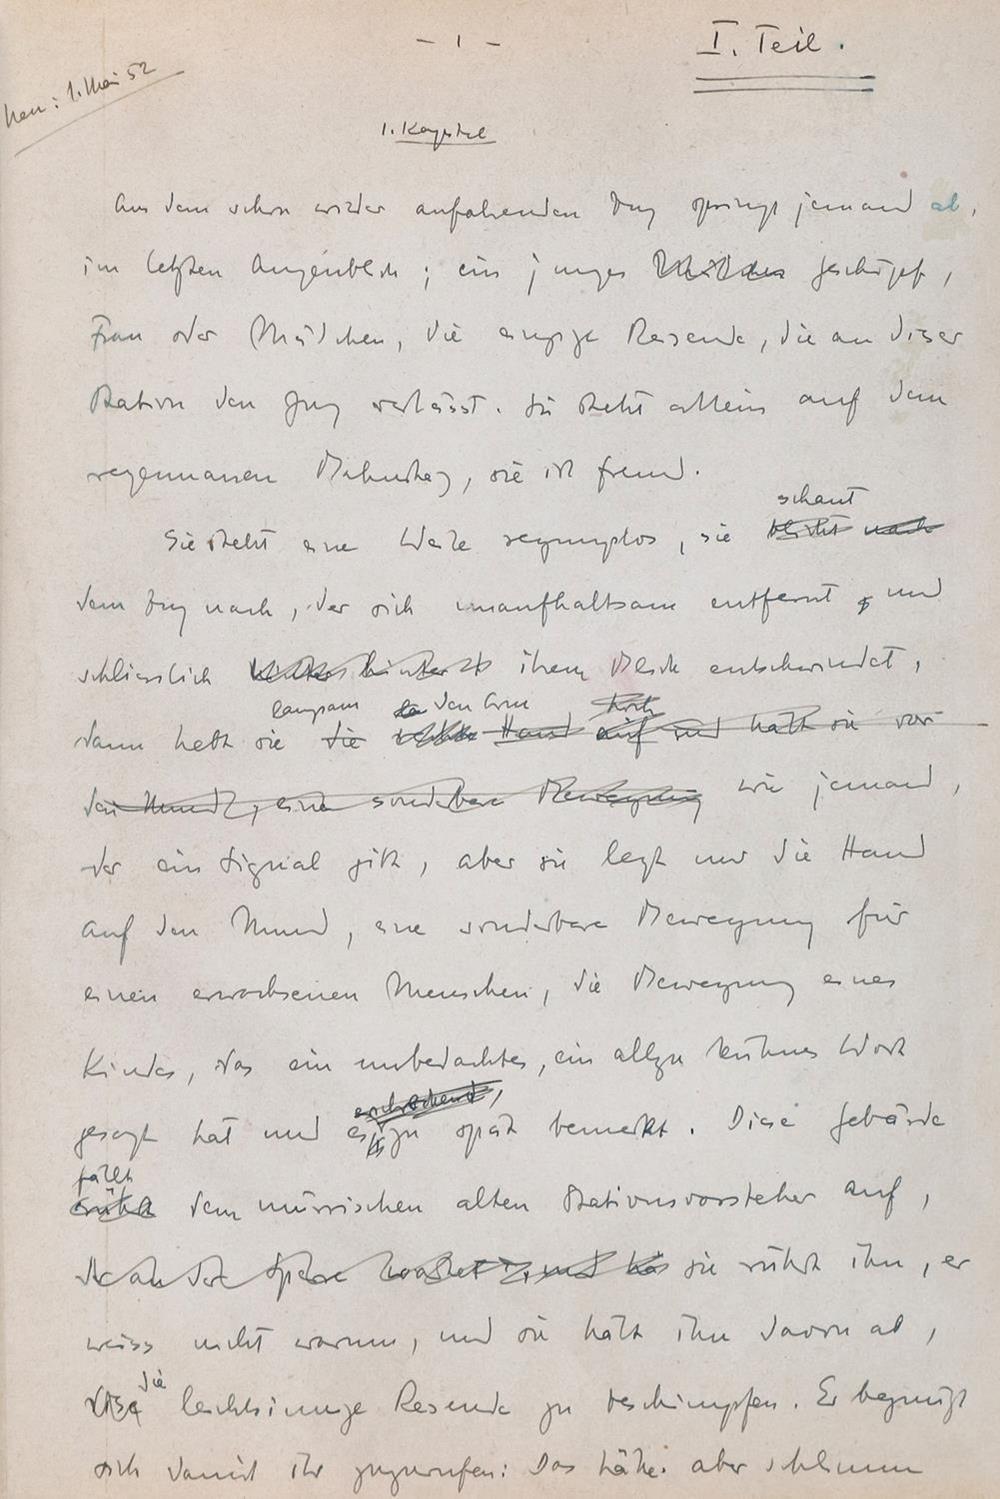 - 1 -
I. Teil.
neu: 1. Mai 52
1. Kapitel
Aus dem schon wieder anfahrenden Zug springt jemand ab,
im letzten Augenblick; ein junges Mädchen Geschöpf,
Frau oder Mädchen, die einzige Reisende, die an dieser
Station den Zug verlässt. Sie steht allein auf dem
regennassen Bahnsteig, sie ist fremd.
schaut
Sie steht eine Weile regungslos, sie blickt nach
dem Zug nach, der sich unaufhaltsam entfernt und
schliesslich ihrem Blick entschwindet,
langsam den Arm hoch
dann hebt sie die rechte Hand auf und hält sie vor
den Mund, eine sonderbare Bewegung wie jemand,
der ein Signal gibt, aber sie legt nur die Hand
auf den Mund, eine sonderbare Bewegung für
einen erwachsenen Menschen, die Bewegung eines
Kindes, das ein unbedachtes, ein allzu kühnes Wort
erschreckend,
gesagt hat und es zu spät bemerkt. Diese Gebärde
fällt
rührt dem mürrischen alten Stationsvorsteher auf,
der an der Sperre wartet, und sie rührt ihn, er
weiss nicht warum, und sie hält ihn davon ab,
die
diese leichtsinnige Reisende zu beschimpfen. Er begnügt
sich damit ihr zuzurufen: Das hätte aber schlimm